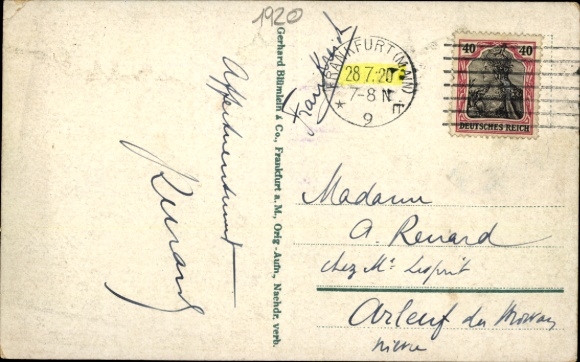 1920
Affectueusement
Renard
Gerhard Blümlein & Co., Frankfurt a. M., Orig-Aufn., Nachdr. verb.
Frankreich
FRANKFURT (MAIN)
28.7.20
7-8 N
* 9 E
40 40
DEUTSCHES REICH
Madame
A. Renard
chez Mr Lesprit
Arleuf du Morvan
Nièvre